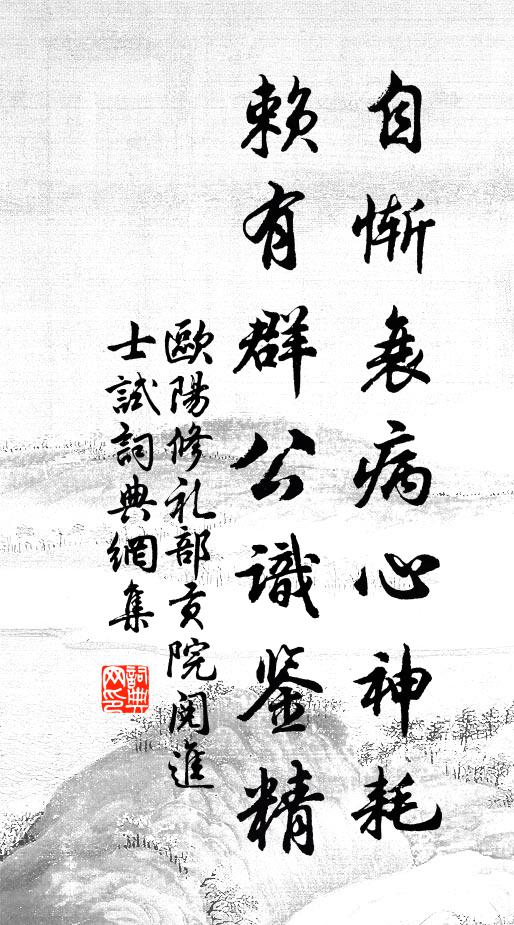 自慚衰病心神耗
賴有群公識鉴精
歐陽修礼部貢院閱進
士試詞典網集
詞典网印